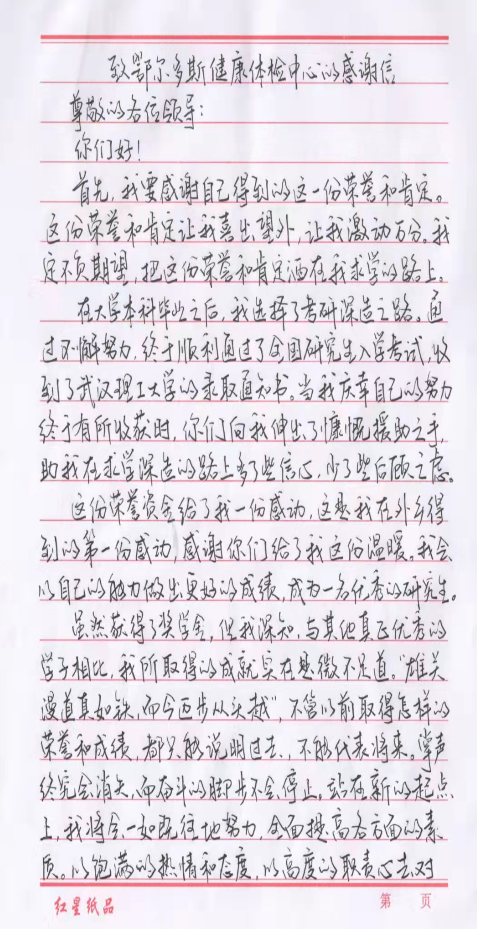 致鄂尔多斯健康体检中心的感谢信
尊敬的各位领导：
你们好！
首先，我要感谢自己得到的这一份荣誉和肯定。
这份荣誉和肯定让我喜出望外，让我激动万分。我
定不负期望，把这份荣誉和肯定洒在我求学的路上。
在大学本科毕业之后，我选择了考研深造之路。通
过不懈努力，终于顺利通过了全国研究生入学考试，收
到了武汉理工大学的录取通知书。当我庆幸自己的努力
终于有所收获时，你们向我伸出了慷慨援助之手，
助我在求学深造的路上多了些信心，少了些后顾之虑。
这份荣誉资金给了我一份感动，这是我在外乡得
到的第一份感动，感谢你们给了我这份温暖。我会
以自己的能力做出更好的成绩，成为一名优秀的研究生。
虽然获得了奖学金，但我深知，与其他真正优秀的
学子相比，我所取得的成就实在是微不足道。“雄关
漫道真如铁，而今迈步从头越”，不管以前取得怎样的
荣誉和成绩，都只能说明过去，不能代表将来。掌声
终究会消失，而奋斗的脚步不会停止。站在新的起点
上，我将会一如既往地努力，全面提高各方面的素
质。以饱满的热情和态度，以高度的职责心去对
红星纸品
第 页